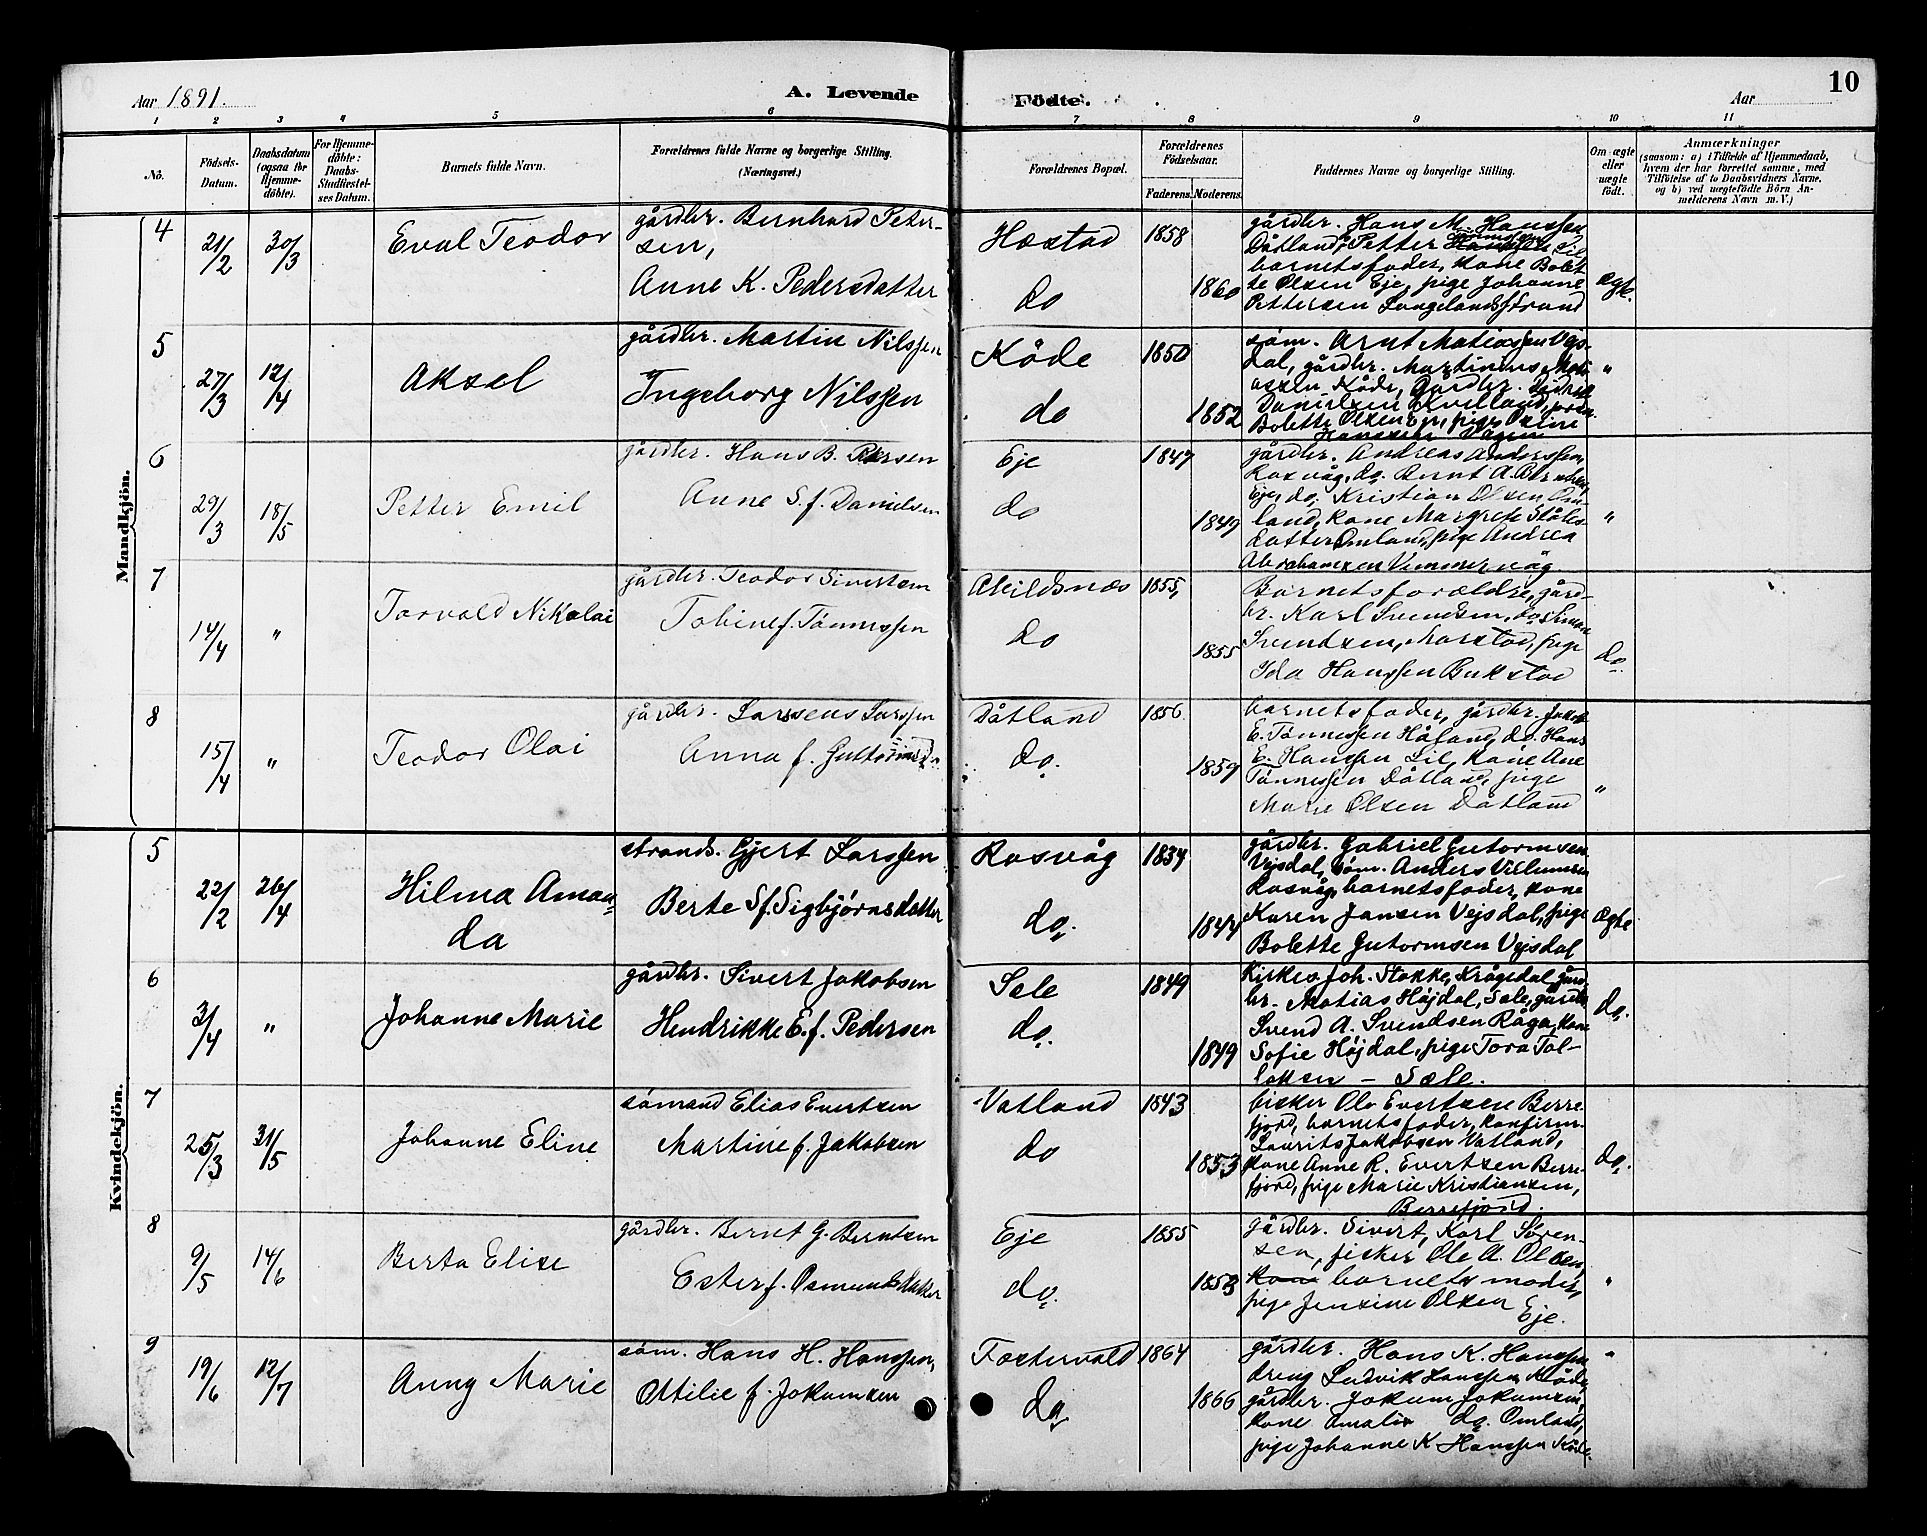 Aar 1891.
A. Levende
Födte.
Aar
10
1 2 3 4 5 6 7 8 9 10 11
No.
Födsels-Datum.
Daabsdatum (ogsaa for Hjemmedöbte).
For Hjemmedöbte: Daabs-Stadfæstelses Datum.
Barnets fulde Navn.
Forældrenes fulde Navne og borgerlige Stilling. (Næringsvei.)
Forældrenes Bopæl.
Forældrenes Födselsaar.
Faderens. Moderens.
Faddernes Navne og borgerlige Stilling.
Om ægte eller uægte födt.
Anmærkninger
(saasom: a) i Tilfælde af Hjemmedaab, hvem der har forrettet samme, med Tilföielse af to Daabsvidners Navne, og b) ved uægtefödte Börn Anmelderens Navn m. V.)
Mandkjön.
4
21/2
30/3
Eval Teodor
gårdbr. Bernhard Peter-
sen,
Anne K. Pedersdatter
Hæstad
do
1858
1860
gårdbr. Hans M. Hanssen
Dåtland, Petter
barnetsfader, kone Bolet-
te Olsen Eje, pige Johanne
Pettersen Langelandsstrand
Ægt.
5
27/3
12/4
Aksel
gårdbr. Martin Nilssen
Ingeborg Nilssen
Kåde
do
1850
1852
søm. Arnt Matiassen Vejs-
dal, gårdbr. Martinius Mati-
assen Kåde, Gårdbr.
Danielsen Kvelland,
Bolette Olsen Eje, pige Oxline
Hanssen Vågen
"
6
29/3
18/5
Petter Emil
gårdbr. Hans B.
Anne S. f. Danielsen
Eje
do
1847
1849
gårdbr. Andreas Anderssen,
Rasvåg, do. Bernt A. Berntsen,
Eje, do. Kristian Olsen Om-
land, kone Margrete Ståles-
datter Omland, pige Andrea
Abrahamsen
"
7
14/4
"
Torvald Nikolai
gårdbr. Teodor Sivertsen
Tobine f. Tønnessen
Abildsnæs
do
1855,
1855
Barnetsforældre, gård-
br. Karl Svendsen, do. Simon
Svendsen, Narstad, pige
Ida Hanssen Bukstad
do.
8
15/4
"
Teodor Olai
gårdbr. Larsens Larssen
Anna f. Guttormsd.
Dåtland
do.
1856
1859
barnetsfader, gårdbr. Jakob
E. Tønnessen Håland, do. Hans
E. Hanssen Lil, kone Ane
Tønnessen Dåtland, pige
Marie Olsen Dåtland
"
Kvindekjön.
5
22/2
26/4
Hilma Aman-
da
strands. Gjert Larssen
Berte S. f. Sigbjørnsdatter
Rasvåg
do.
1834
1844
gårdbr. Gabriel Gutormsen
Vejsdal, søm. Anders Villumsen
Rasvåg, barnetsfader, kone
Karen Jansen Vejsdal, pige
Bolette Gutormsen Vejsdal
Ægte
6
3/4
"
Johanne Marie
gårdbr. Sivert Jakobsen
Hendrikke E. f. Pedersen
Sele
do.
1849
1849
Kirkes. Joh. Stokke, Krågedal, gård-
br. Matias Højdal, Sæle, gårdbr.
Svend A. Svendsen Råga, kone
Sofie Højdal, pige Tora Tol-
laksen — Sæle.
do.
7
25/3
31/5
Johanne Eline
sømand Elias Evertsen
Martine f. Jakobsen
Vatland
do
1843
1853
fisker Ole Evertsen Berre-
fjord, barnetsfader, konfirm.
Laurits Jakobsen Vatland,
kone Anne R. Evertsen Berre-
fjord, pige Marie Kristiansen,
Berrefjord.
do.
8
9/5
14/6
Berta Elise
gårdbr. Bernt G. Berntsen
Ester f. Osmundsdatter
Eje
do.
1855
1853
gårdbr. Sivert, Karl Søren-
sen, fisker Ole A. Olsen,
kone barnets moder,
pige Jensine Olsen
Eje.
"
9
19/6
12/7
Anny Marie
søm. Hans H. Hanssen,
Ottilie f. Jokumsen
Fostervold
do
1864
1866
gårdbr. Hans K. Hanssen
dreng Ludvik Hanssen Kåde,
gårdbr. Jokum Jokumsen,
kone Amalie do. Omland,
pige Johanne K Hanssen Kåde.
"